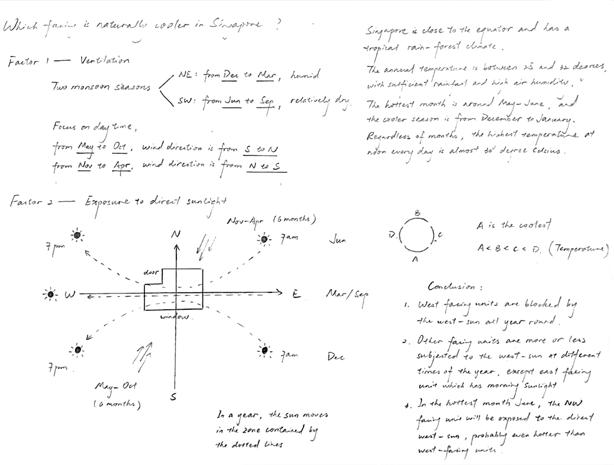 Which facing is naturally cooler in Singapore ?
Factor 1 — Ventilation
Two monsoon seasons
NE : from Dec to Mar, humid
SW : from Jun to Sep, relatively dry.
Focus on day time,
from May to Oct, wind direction is from S to N
from Nov to Apr, wind direction is from N to S
Singapore is close to the equator and has a
tropical rain-forest climate.
The annual temperature is between 23 and 32 degrees,
with sufficient rainfall and high air humidity.
The hottest month is around May-June, and
the cooler season is from December to January.
Regardless of months, the highest temperature at
noon every day is almost 30 degree Celcius.
Factor 2 — Exposure to direct sunlight
Nov-Apr (6 months)
N
7pm
7am
Jun
door
W
E
Mar/Sep
window
7pm
7am
Dec
May-Oct
(6 months)
S
In a year, the sun moves
in the zone contained by
the dotted lines
B
D
C
A
A is the coolest
A < B < C < D. (Temperature)
Conclusion :
1. West facing units are blocked by
the west-sun all year round.
2. Other facing units are more or less
subjected to the west-sun at different
times of the year, except east facing
unit which has morning sunlight
In the hottest month June, the NW
facing unit will be exposed to the direct
west-sun, probably even hotter than
west-facing units.